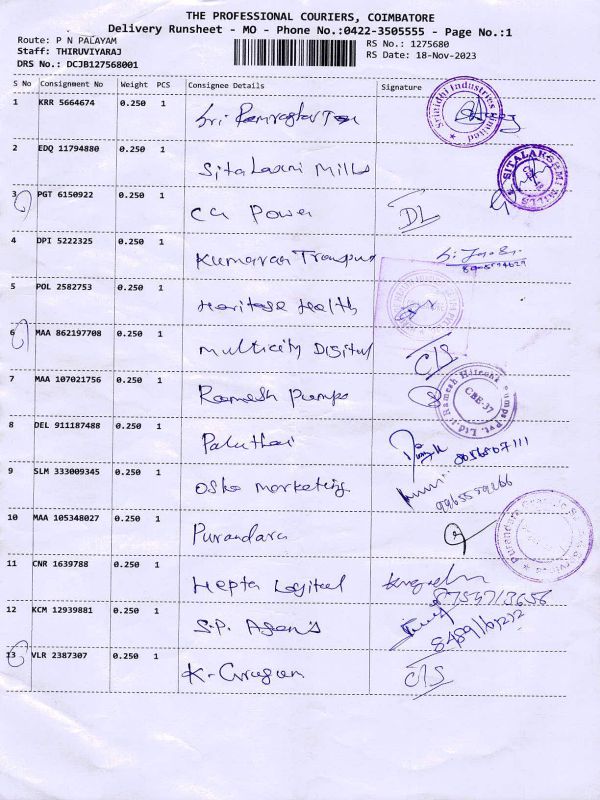 THE PROFESSIONAL COURIERS, COIMBATORE
Delivery Runsheet - MO - Phone No.:0422-3505555 - Page No.:1
Route: P N PALAYAM
Staff: THIRUVIYARAJ
DRS No.: DCJB127568001
RS No.: 1275680
RS Date: 18-Nov-2023
S No Consignment No Weight PCS Consignee Details Signature
1 KRR 5664674 0.250 1 Sri
Srinidhi Industries Limited
2 EDQ 11794880 0.250 1 Sitalaxmi Mills
SITALAKSHMI MILLS
3 PGT 6150922 0.250 1 CG Power DL
4 DPI 5222325 0.250 1 Kumaran
5 POL 2582753 0.250 1 Heritage Health
6 MAA 862197708 0.250 1 Multicity Digital C/S
7 MAA 107021756 0.250 1 Ramesh Pumps
Ramesh Hitech Pumps Pvt. Ltd. CBE-37
8 DEL 911187488 0.250 1 8056807111
9 SLM 333009345 0.250 1 Marketing
9965559266
10 MAA 105348027 0.250 1 Purandara
11 CNR 1639788 0.250 1 Hepta
8754713656
12 KCM 12939881 0.250 1 S.P. Agen's
13 VLR 2387307 0.250 1 C/S